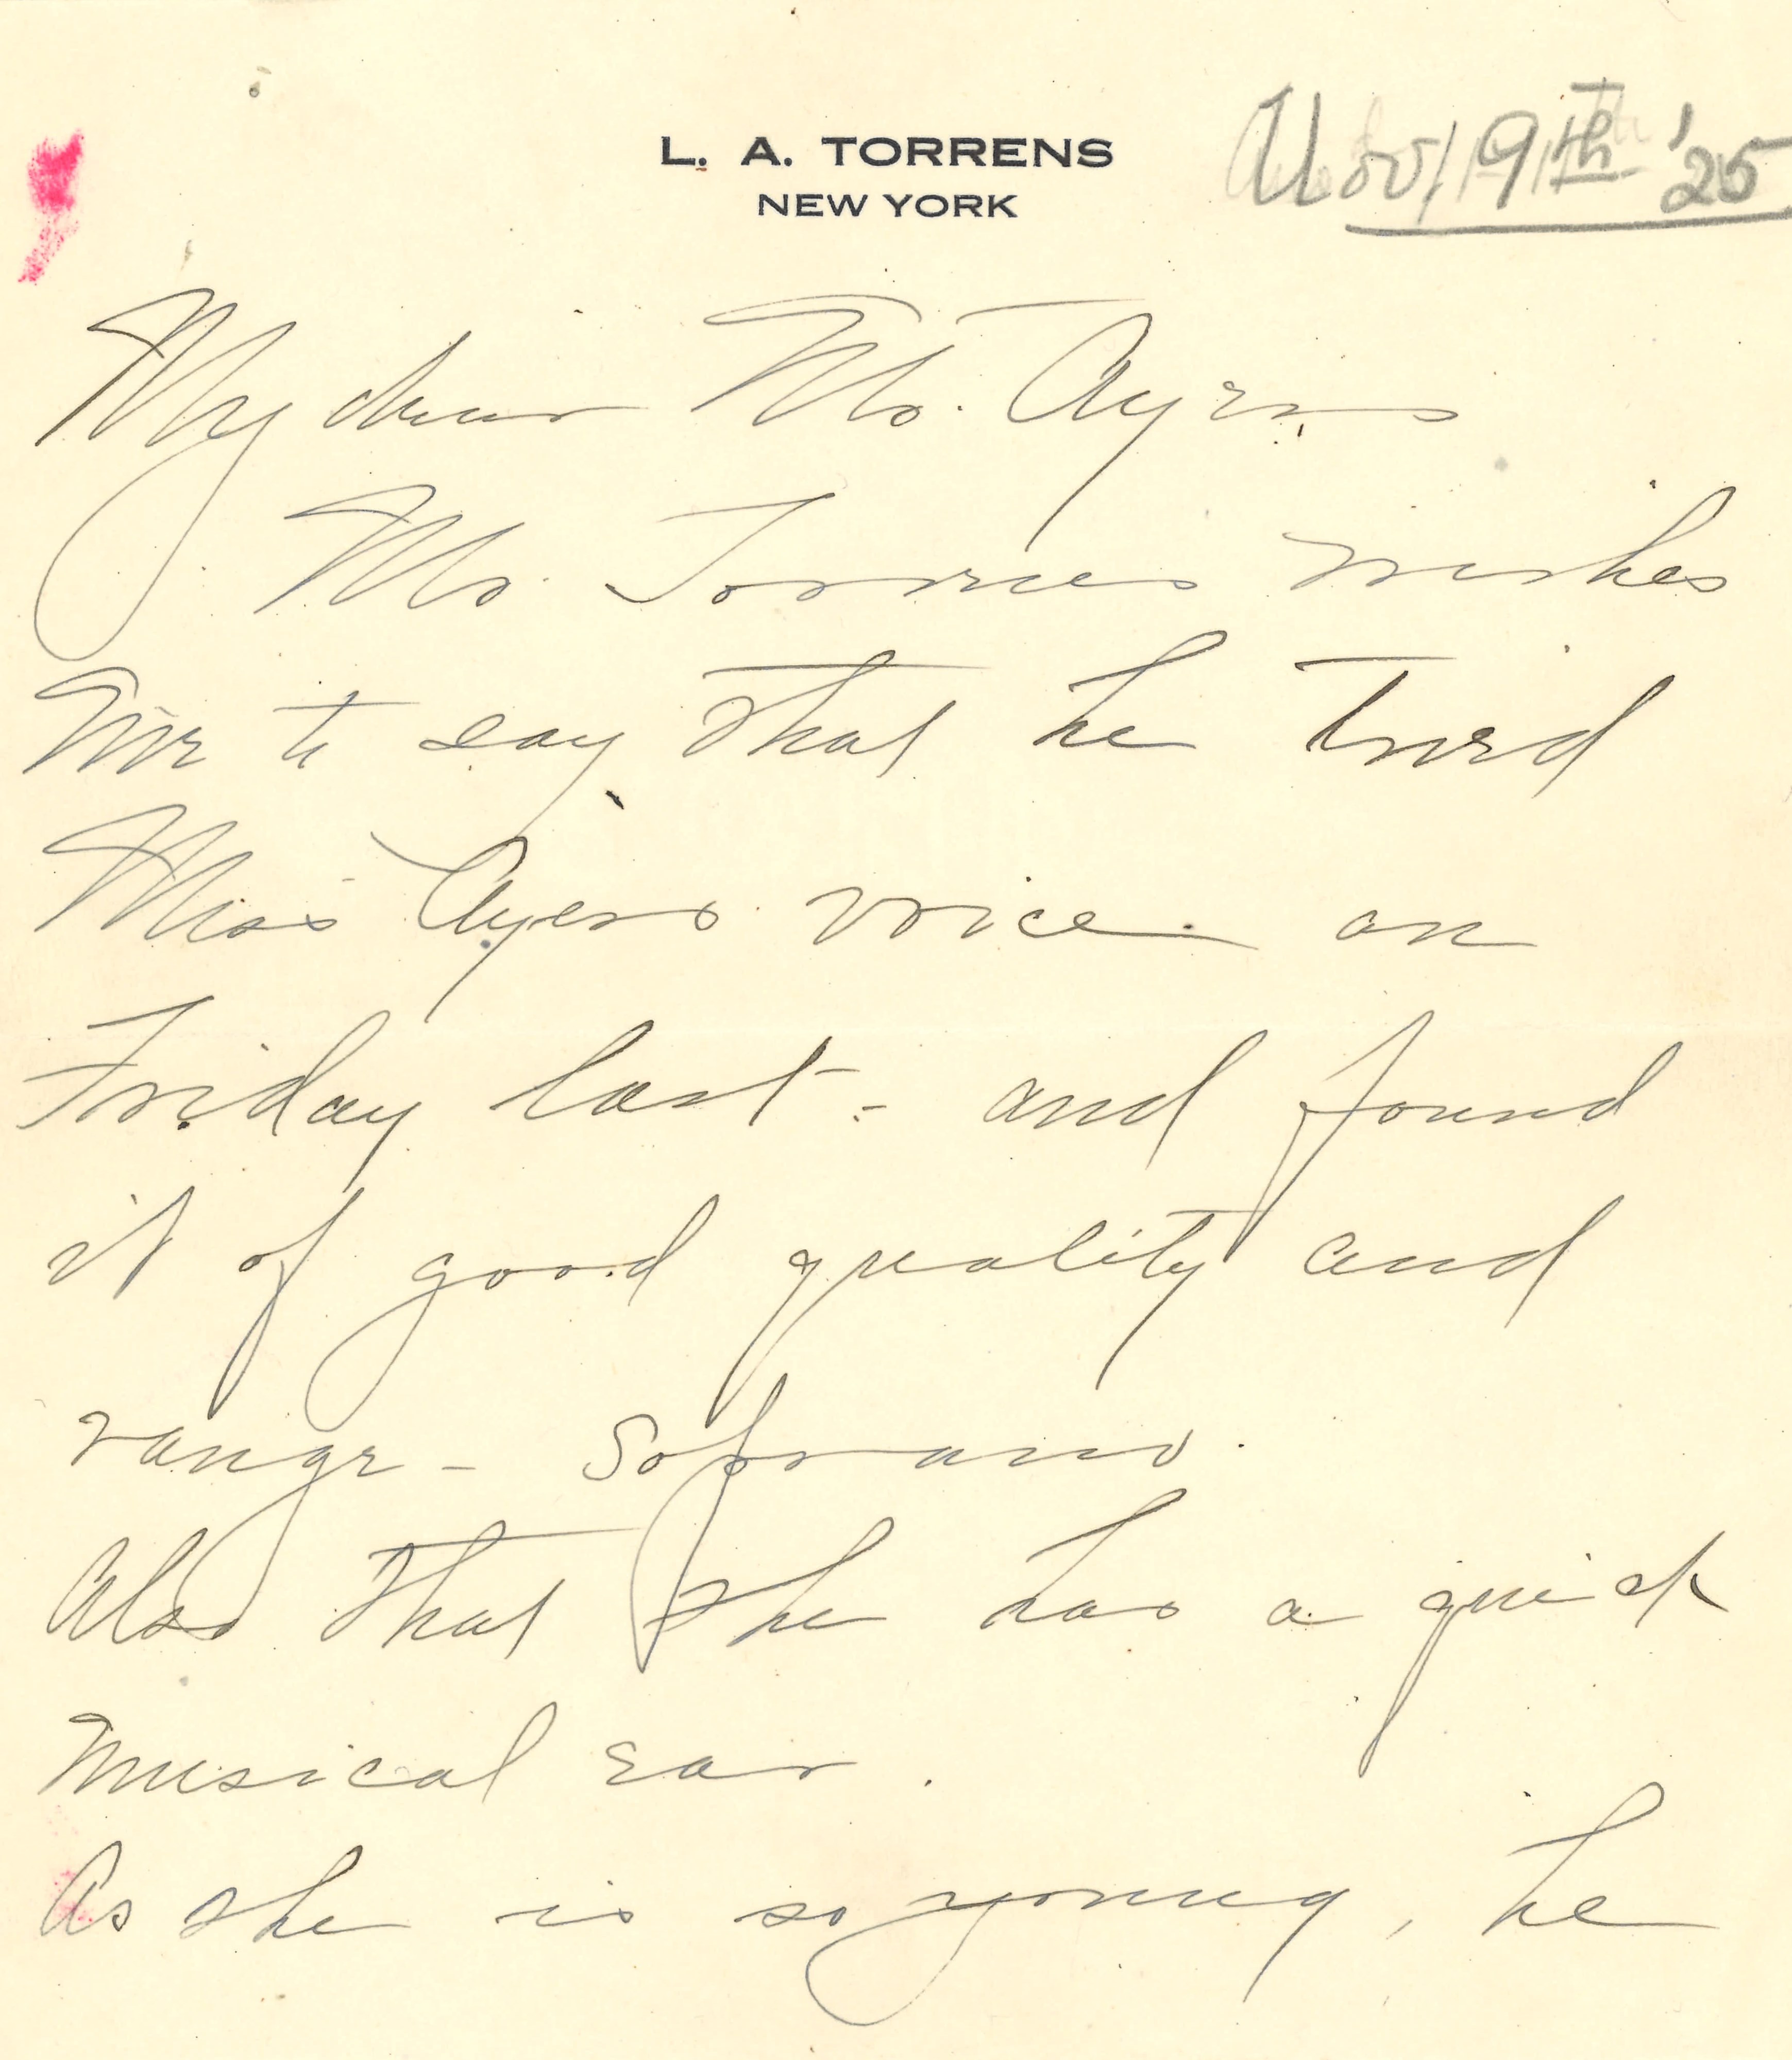 L. A. TORRENS
NEW YORK
Nov 19th '25
My dear Mr. Ayers
Mr. Torrens wishes
me to say that he tried
Miss Ayers voice on
Friday last - and found
it of good quality and
range - Soprano.
Also that she has a quick
musical ear.
As she is so young, he